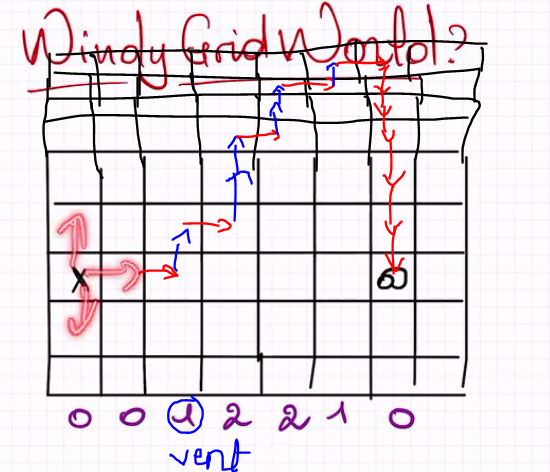 Windy Grid World?
X
0 0 1 2 2 1 0
vent